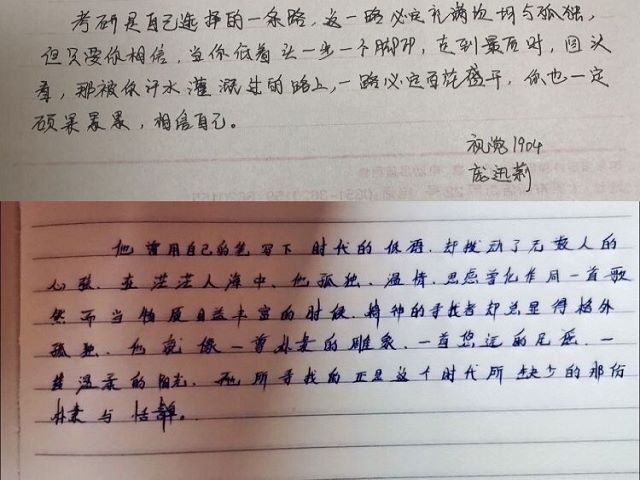 考研是自己选择的一条路，这一路必定充满坎坷与孤独，
但只要你相信，当你低着头一步一个脚印，走到最后时，回头
看，那被你汗水灌溉过的路上，一路必定百花盛开，你也一定
硕果累累，相信自己。
视觉1904
庞迅莉
他曾用自己的笔写下时代的低语，却拨动了无数人的
心弦，在茫茫人海中，他孤独、温情、思虑学化作同一首歌
然而当物质日益丰富的时候，精神的寻找者却总显得格外
孤独，他就像一尊朴素的雕象，一首悠远的尾延，一
柔的阳光，他所寻找的正是这个时代所缺少的那份
朴素与恬静。